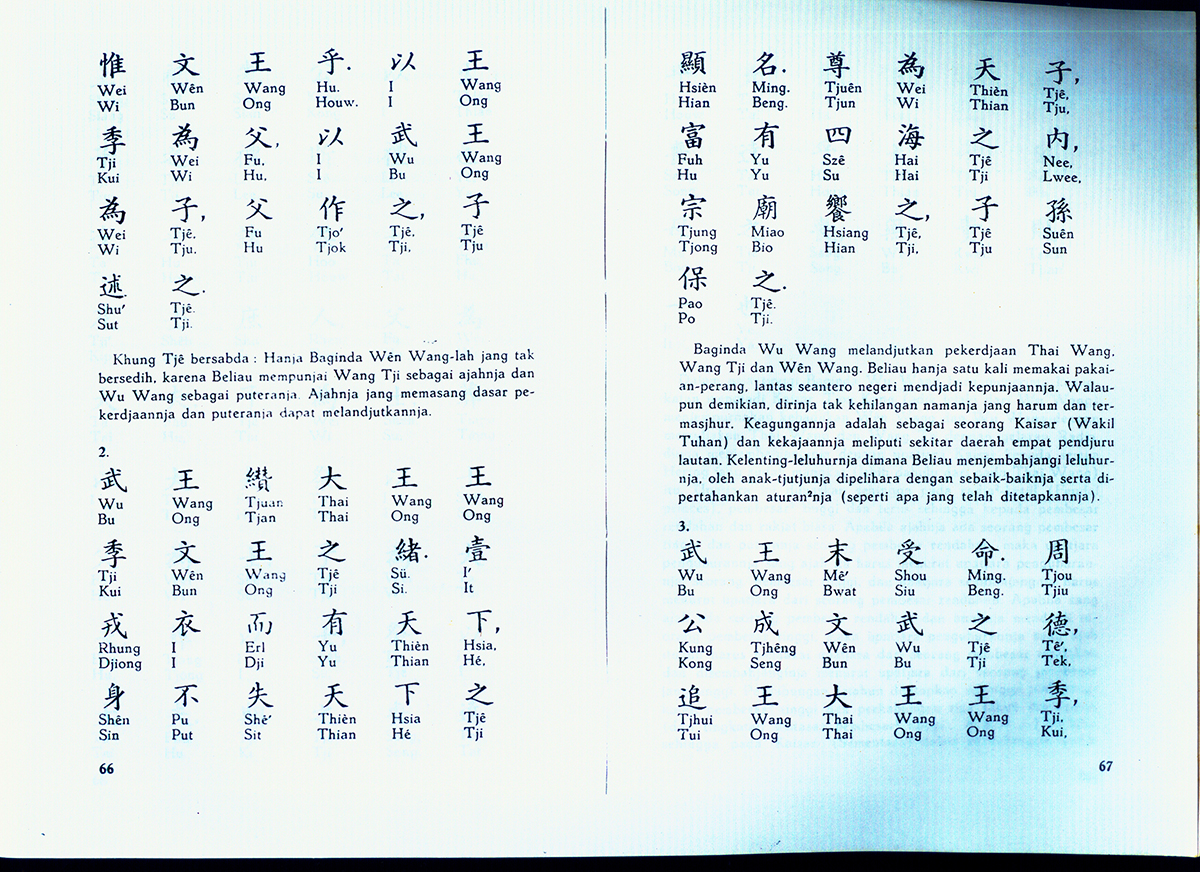 惟 文 王 乎. 以 王
Wei Wên Wang Hu. I Wang
Wi Bun Ong Houw. I Ong
季 為 父, 以 武 王
Tji Wei Fu, I Wu Wang
Kui Wi Hu, I Bu Ong
為 子, 父 作 之, 子
Wei Tjê, Fu Tjo' Tjê, Tjê
Wi Tju, Hu Tjok Tji, Tju
述 之.
Shu' Tjê.
Sut Tji.
Khung Tjê bersabda : Hanja Baginda Wên Wang-lah jang tak
bersedih, karena Beliau mempunjai Wang Tji sebagai ajahnja dan
Wu Wang sebagai puteranja. Ajahnja jang memasang dasar pe-
kerdjaannja dan puteranja dapat melandjutkannja.
2.
武 王 纘 大 王 王
Wu Wang Tjuan Thai Wang Wang
Bu Ong Tjan Thai Ong Ong
季 文 王 之 緒. 壹
Tji Wên Wang Tjê Sü. I'
Kui Bun Ong Tji Si. It
戎 衣 而 有 天 下,
Rhung I Erl Yu Thièn Hsia,
Djiong I Dji Yu Thian Hé,
身 不 失 天 下 之
Shên Pu Shê' Thièn Hsia Tjê
Sin Put Sit Thian Hé Tji
66
顯 名. 尊 為 天 子,
Hsièn Ming. Tjuên Wei Thièn Tjê,
Hian Beng. Tjun Wi Thian Tju,
富 有 四 海 之 内,
Fuh Yu Szê Hai Tjê Nee,
Hu Yu Su Hai Tji Lwee,
宗 廟 饗 之, 子 孫
Tjung Miao Hsiang Tjê, Tjê Suên
Tjong Bio Hian Tji, Tju Sun
保 之.
Pao Tjê.
Po Tji.
Baginda Wu Wang melandjutkan pekerdjaan Thai Wang,
Wang Tji dan Wên Wang. Beliau hanja satu kali memakai pakai-
an-perang, lantas seantero negeri mendjadi kepunjaannja. Walau-
pun demikian, dirinja tak kehilangan namanja jang harum dan ter-
masjhur. Keagungannja adalah sebagai seorang Kaisar (Wakil
Tuhan) dan kekajaannja meliputi sekitar daerah empat pendjuru
lautan. Kelenting-leluhurnja dimana Beliau menjembahjangi leluhur-
nja, oleh anak-tjutjunja dipelihara dengan sebaik-baiknja serta di-
pertahankan aturan²nja (seperti apa jang telah ditetapkannja).
3.
武 王 末 受 命. 周
Wu Wang Mê' Shou Ming. Tjou
Bu Ong Bwat Siu Beng. Tjiu
公 成 文 武 之 德,
Kung Tjhêng Wên Wu Tjê Tê',
Kong Seng Bun Bu Tji Tek,
追 王 大 王 王 季,
Tjhui Wang Thai Wang Wang Tji,
Tui Ong Thai Ong Ong Kui,
67